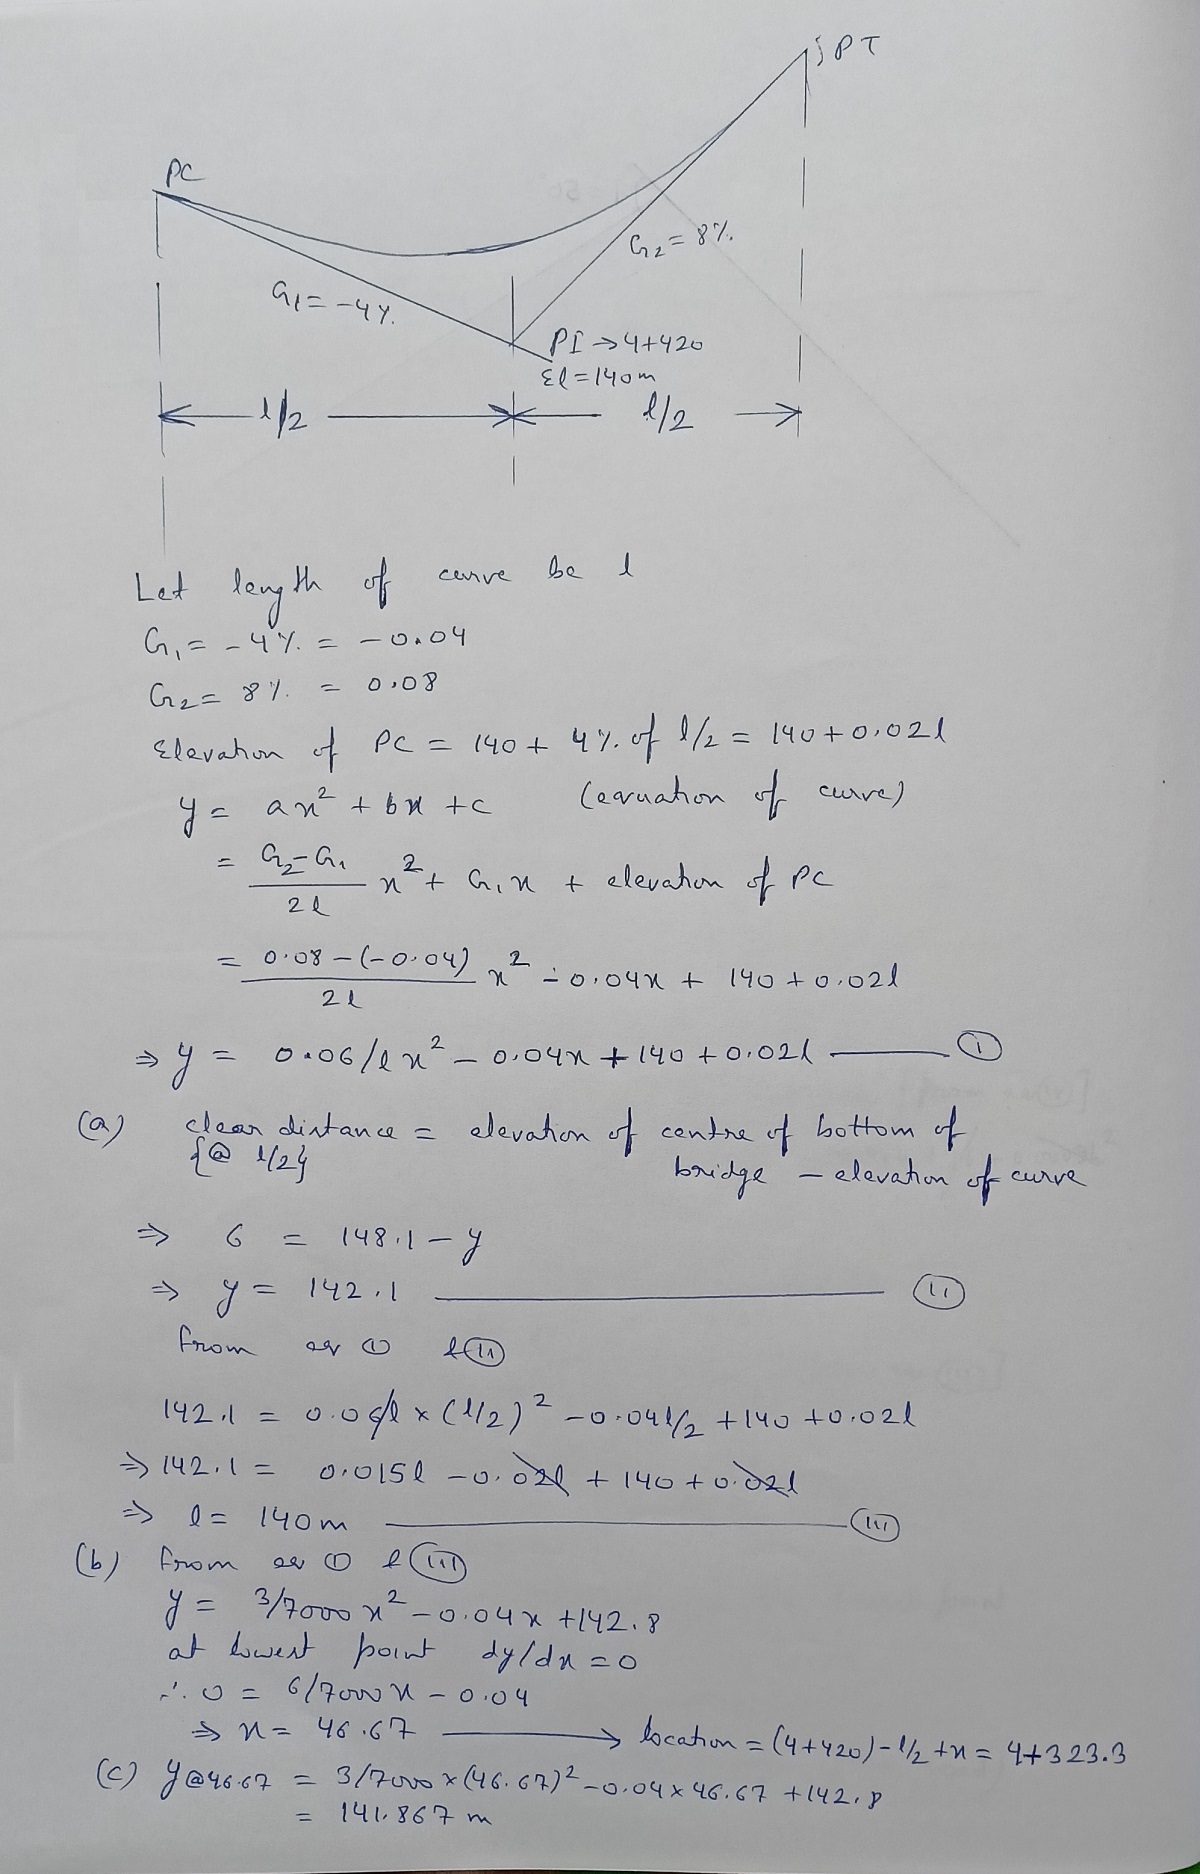 PT
PC
G₂ = 8%.
G₁ = -4%.
PI → 4+420
El = 140m
l/2
l/2
Let length of curve be l
G₁ = -4%. = -0.04
G₂ = 8%. = 0.08
Elevation of PC = 140 + 4%. of l/2 = 140 + 0.02l
y = ax² + bx + c (equation of curve)
= G₂-G₁/2l x² + G₁x + elevation of PC
= 0.08-(-0.04)/2l x² - 0.04x + 140 + 0.02l
⇒ y = 0.06/l x² - 0.04x + 140 + 0.02l — (i)
(a) clear distance = elevation of centre of bottom of
{@ l/2} bridge - elevation of curve
⇒ 6 = 148.1 - y
⇒ y = 142.1 — (ii)
from eq (i) & (ii)
142.1 = 0.06/l × (l/2)² - 0.04l/2 + 140 + 0.02l
⇒ 142.1 = 0.015l - 0.02l + 140 + 0.02l
⇒ l = 140m — (iii)
(b) from eq (i) & (iii)
y = 3/7000 x² - 0.04x + 142.8
at lowest point dy/dx = 0
∴ 0 = 6/7000 x - 0.04
⇒ x = 46.67 → location = (4+420) - l/2 + x = 4+323.3
(c) y@46.67 = 3/7000 × (46.67)² - 0.04 × 46.67 + 142.8
= 141.867 m